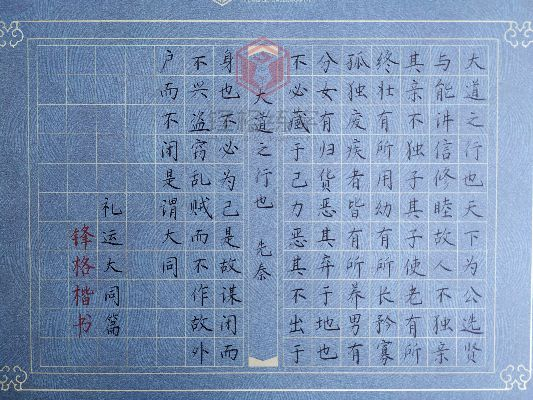 大道之行也天下为公选贤
与能讲信修睦故人不独亲
其亲不独子其子使老有所
终壮有所用幼有所长矜寡
孤独废疾者皆有所养男有
分女有归货恶其弃于地也
不必藏于己力恶其不出于
大道之行也 先秦
身也不必为己是故谋闭而
不兴盗窃乱贼而不作故外
户而不闭是谓大同
礼运大同篇
锋格楷书